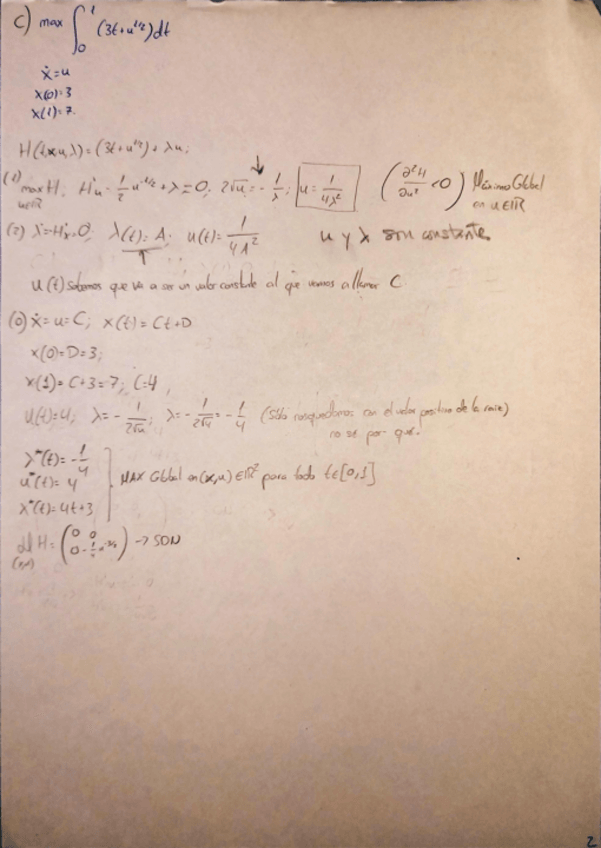 C) max ∫₀¹ (3t+u^{1/2})dt
ẋ=u
x(0)=3
x(1)=7.
H(t,x,u,λ)=(3t+u^{1/2})+λu;
(1) max H; H'u=1/2 u^{-1/2}+λ=0; 2√u=-1/λ; u=1/4λ² (∂²H/∂u²<0) Máximo Global
u∈ℝ en u∈ℝ
(2) λ̇=-H'x=0; λ(t)=A; u(t)=1/4A² u y λ son constante.
u(t) sabemos que va a ser un valor constante al que vamos a llamar C
(0) ẋ=u=C; x(t)=Ct+D
x(0)=D=3;
x(1)=C+3=7; C=4,
u(t)=4; λ=-1/2√u; λ=-1/2√4=-1/4 (Sólo nos quedamos con el valor positivo de la raíz)
no sé por qué.
λ*(t)=-1/4
u*(t)=4
x*(t)=4t+3
MAX Global en (x,u)∈ℝ² para todo t∈[0,1]
H=(0 0
0 -1/4 u^{-3/2}) → SDN
(x,u)
2